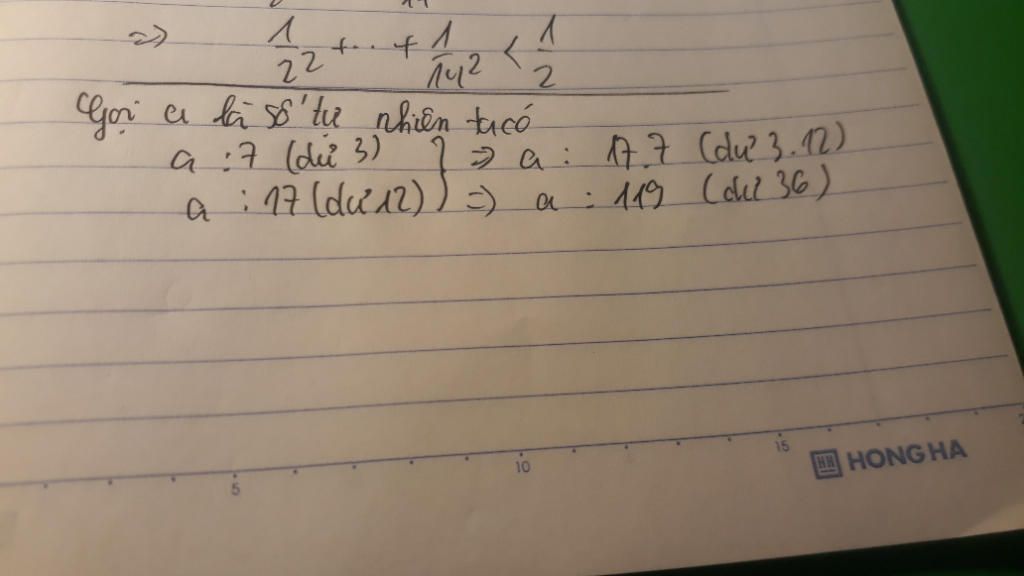 => 1/2² + ... + 1/14² < 1/2
Gọi a là số tự nhiên ta có
a : 7 (dư 3) } => a : 17.7 (dư 3.12)
a : 17 (dư 12) } => a : 119 (dư 36)
5 10 15
HH HONG HA